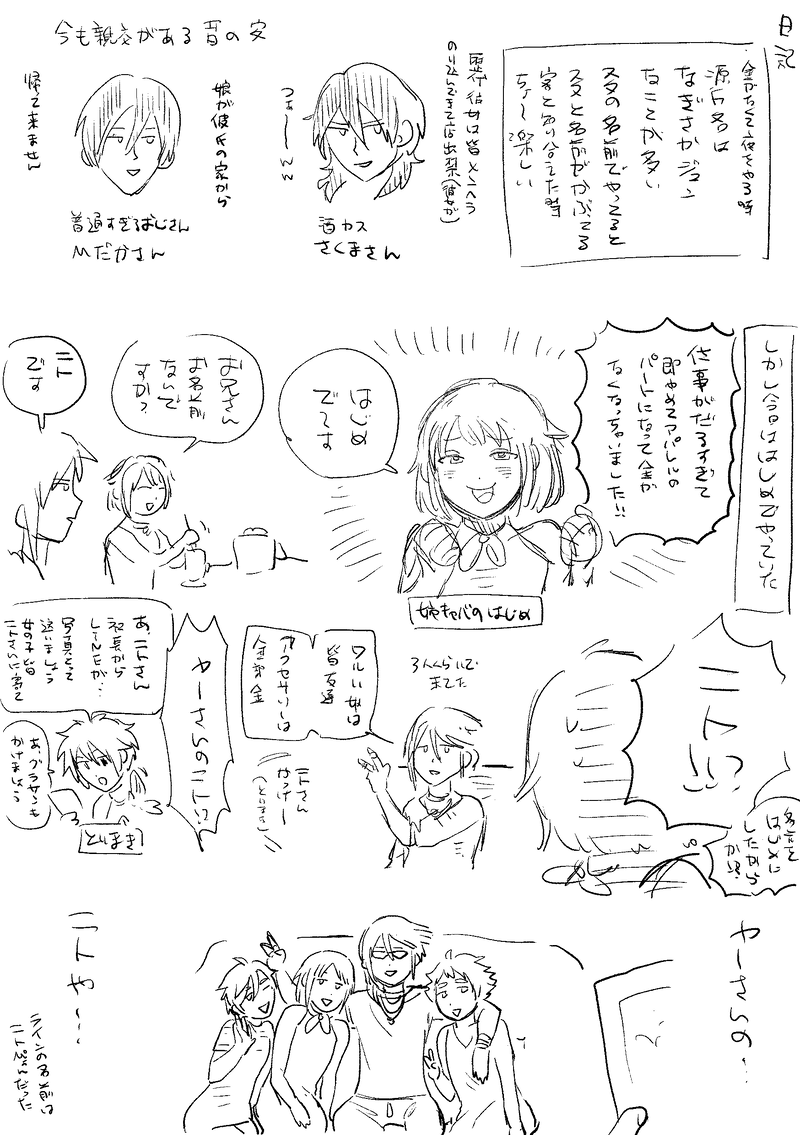 日記
金がなくて夜をやる時
源氏名は
なぎさかジュン
なことが多い
スタの名前でやってると
スタと名前がかぶってる
客と知り合えた時
ちょ〜楽しい
今も親交がある昔の客
歴代彼女は皆メンヘラ
のり込んできて店出禁(彼女が)
つれ〜〜ww
酒カス
さくまさん
娘が彼氏の家から
帰って来ません
普通すぎるおじさん
Mだかさん
しかし今日ははじめでやっていた
仕事がだるすぎて
即やめてアパレルの
パートになって金が
なくなっちゃいました!!
はじめ
でーす
姉キャバのはじめ
お兄さん
お名前
なんで
すかっ
ニト
です
ニト!?
名前を
はじめに
したから
か!?
3人くらいで
来てた
ワルい女は
皆友達
アクセサリーは
全部金
ニトさん
かっけー
(とりまき)
ヤーさんのニト!?
あ、ニトさん
社長から
LINEが…
写真とって
送いましょう
女の子皆
ニトさんに寄って
あ、グラサンも
かけましょう
とりまき
ヤーさんの…
ニトや…
ラインの名前は
ニトぴょんだった